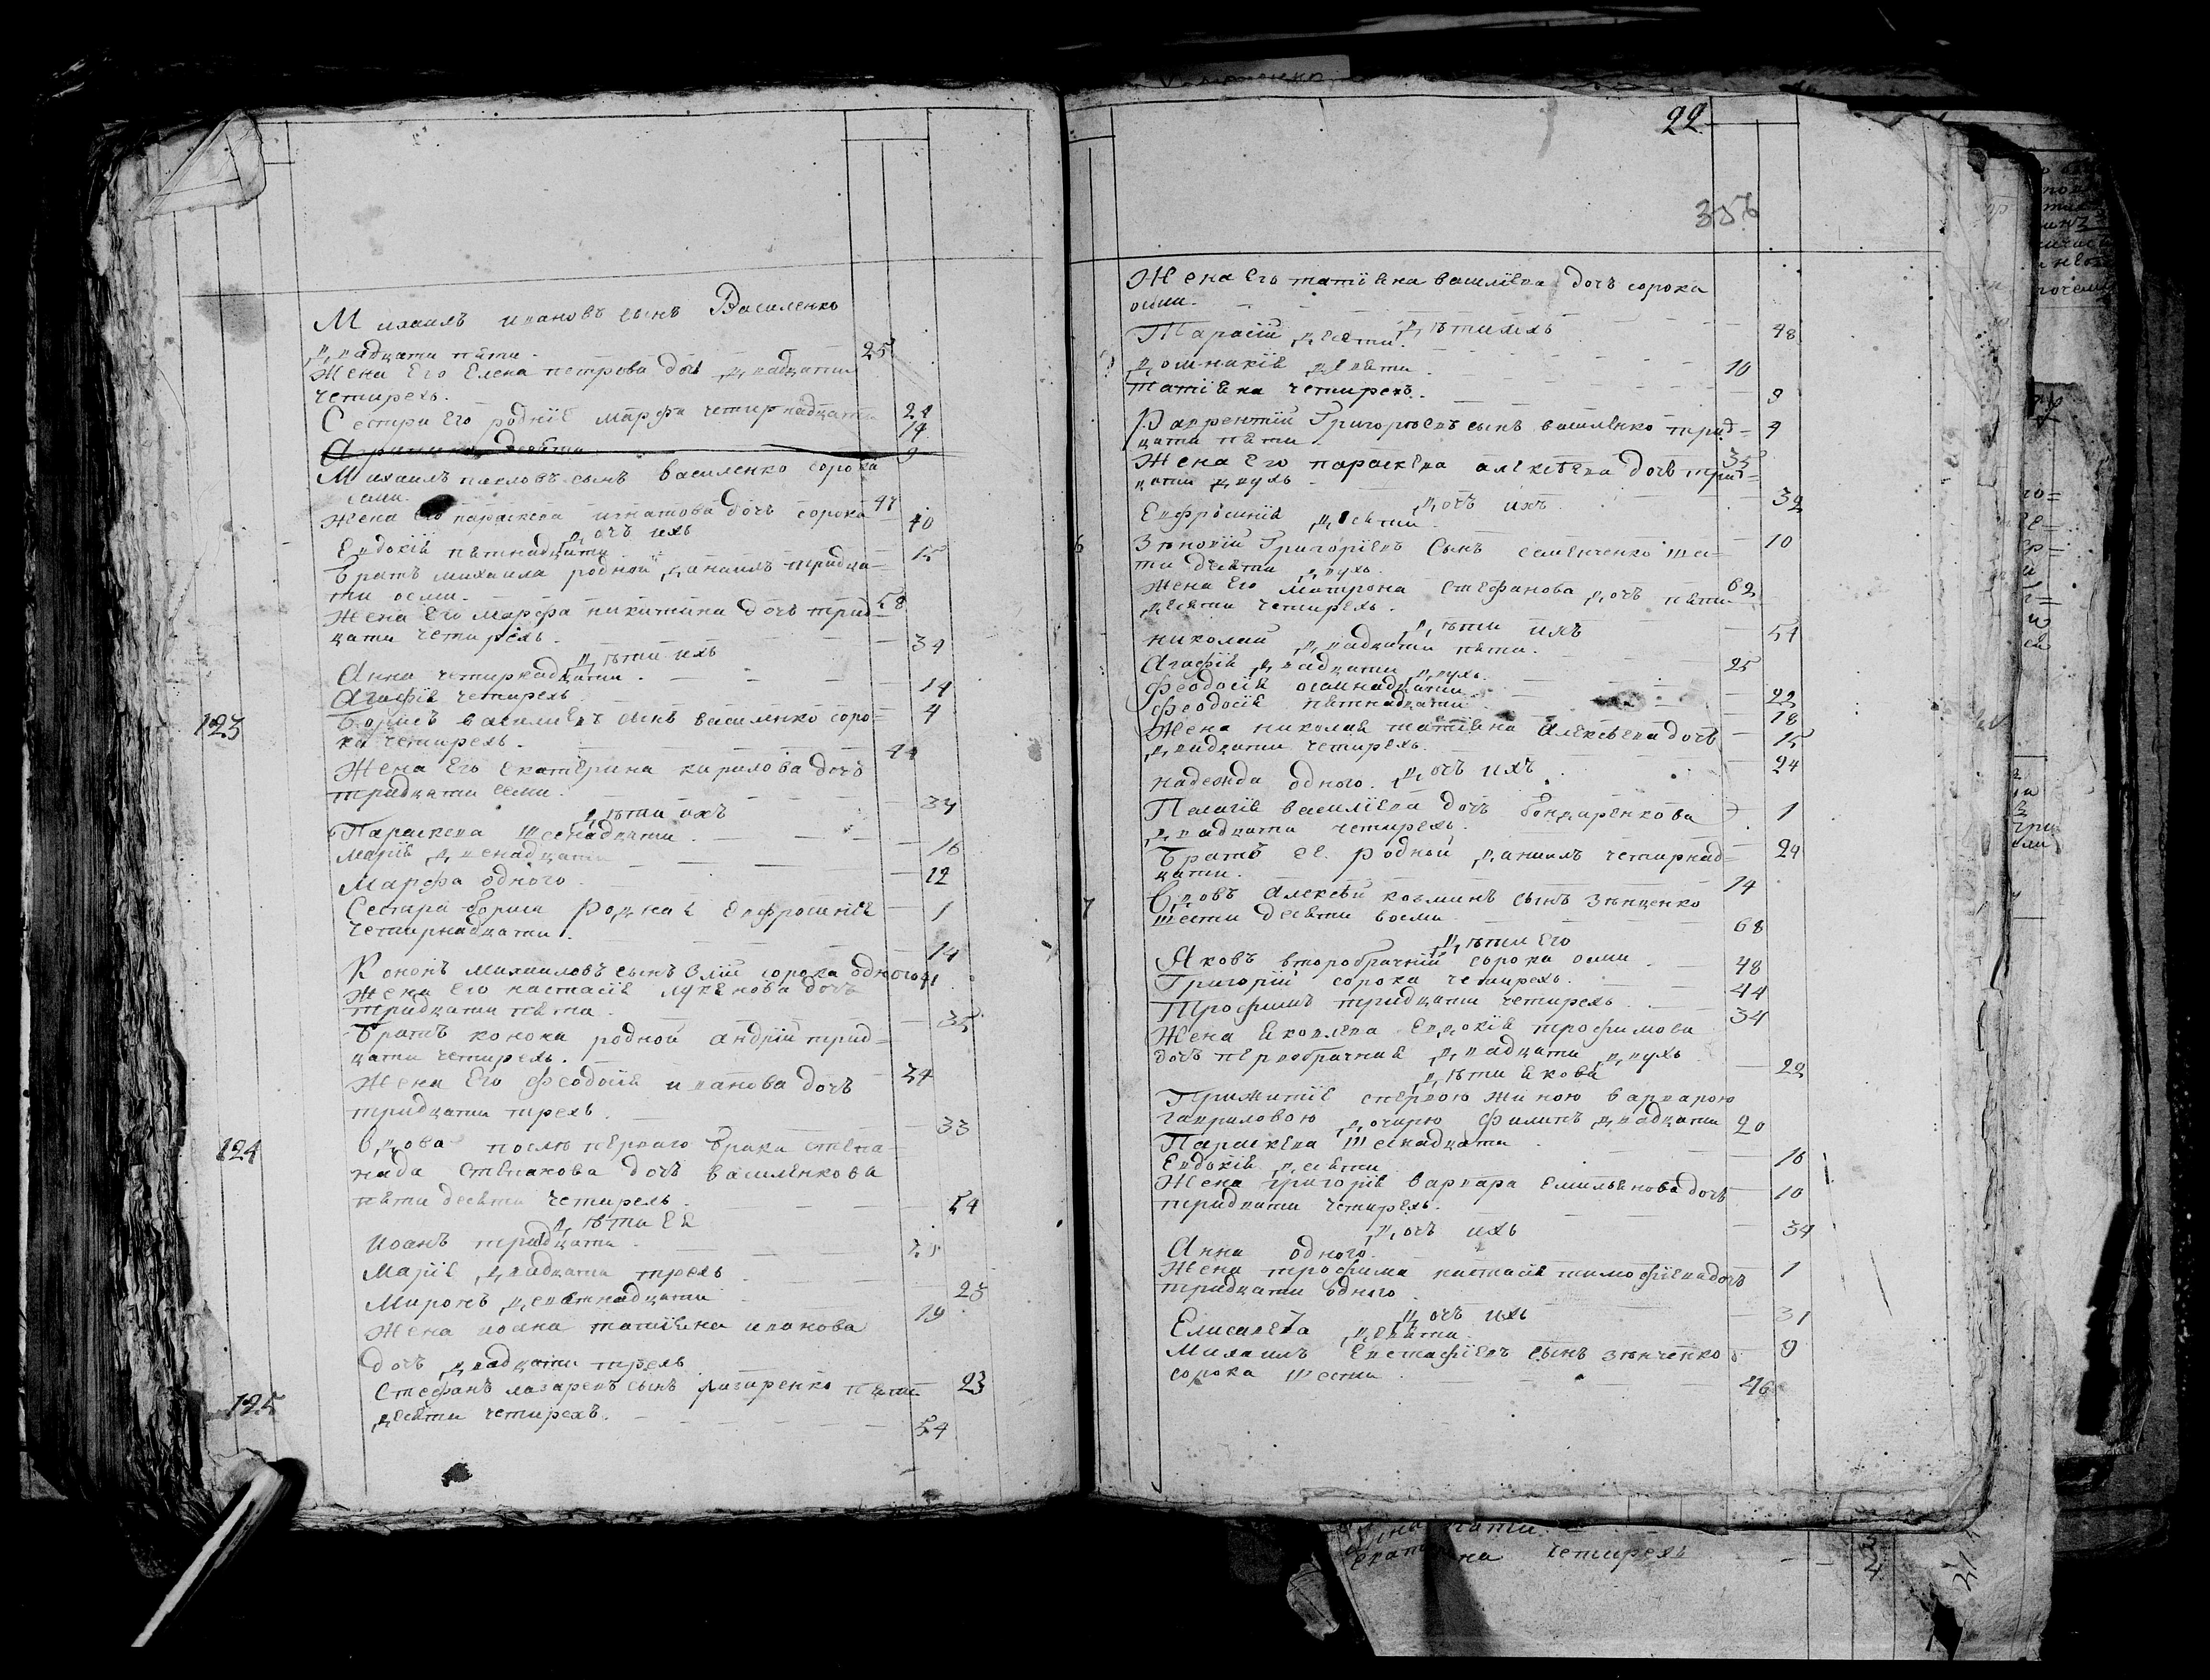 Михаилъ ивановъ сынъ Василенко
двадцати пяти. 25
Жена Его Елена петрова дочь двадцати
четирехъ. 24
Сестри Его родніе Марфа четирнадцати 14
десяти 9
Михаилъ павловъ сынъ Василенко сорока
семи. 47
Жена Его параскева игнатова дочь сорока 40
дочь ихъ
Евдокія пятнадцати 15
Братъ михаила родной данилъ тридца-
ти осми. 38
Жена Его марфа никитина дочь трид-
цати четирехъ. 34
дѣти ихъ
Анна четирнадцати. 14
Агафія четирехъ 4
123 Борисъ василиевъ синъ василенко соро-
ка четирехъ. 44
Жена Его екатерина кирилова дочь
тридцати семи. 37
дѣти ихъ
Параскева шеснадцати. 16
Марія двенадцати 12
Марфа одного 1
Сестра бориса родная Евфросинія
четирнадцати. 14
Кононъ михаиловъ сынъ сорока одного 41
Жена Его настасія дочь
тридцати пяти. 35
Братъ конона родной андрій трид-
цати четирехъ. 34
Жена Его феодосія иванова дочь
тридцати трехъ. 33
124 Вдова послѣ перваго брака степа-
нида степанова дочь василенкова
пяти десяти четирехъ. 54
дѣти Ея
Иоанъ тридцати. 30
Марія двадцати трехъ 23
Миронъ девятнадцати 19
Жена иоана татіяна иванова
дочь двадцати трехъ 23
125 Стефанъ лазаревъ сынъ лазаренко пяти
десяти четирехъ. 54
22
356
Жена Его татіяна василіева дочь сорока
осми. 48
дѣти ихъ
Тарасій десяти. 10
Домникія девяти. 9
татіяна четирехъ. 4
Лаврентій Григоріевъ сынъ василенко трид-
цати пяти 35
Жена Его параскева алексѣева дочь трид-
цати двухъ 32
дочь ихъ
Евфросинія десяти. 10
6 Зѣновій Григоріевъ Сынъ семенченко шес-
ти десяти двухъ. 62
Жена Его матрона Стефанова дочь пяти
десяти четирехъ. 54
дѣти ихъ
николай двадцати пяти. 25
Агафія двадцати двухъ. 22
Феодосія осмнадцати 18
Феодосія пятнадцати 15
Жена николая татіяна алексѣева дочь
двадцати четирехъ. 24
дочь ихъ
надежда одного. 1
Пелагія василіева дочь бондаренкова
двадцати четирехъ. 24
Братъ ее родной данилъ четирнад-
цати. 14
7 Вдовъ алексѣй козминъ сынъ Зѣнценко
шести десяти восми 68
дѣти Его
Яковъ второбрачній сорока осми. 48
Григорій сорока четирехъ. 44
Трофимъ тридцати четирехъ. 34
Жена яковлева Евдокія трофимова
дочь первобрачная двадцати двухъ 22
дѣти якова
Прижитіе спервою жиною варварою
гавриловою дочирю филипъ двадцати 20
Параскева шеснадцати 16
Евдокія десяти 10
Жена григорія варвара емильянова дочь
тридцати четирехъ. 34
дочь ихъ
Анна одного. 1
Жена трофима настасія тимофіева дочь
тридцати одного 31
дочь ихъ
Елисавета девяти. 9
Михаилъ Евстафіевъ сынъ зѣнченко
сорока шести 46
пяти.
четирехъ 4